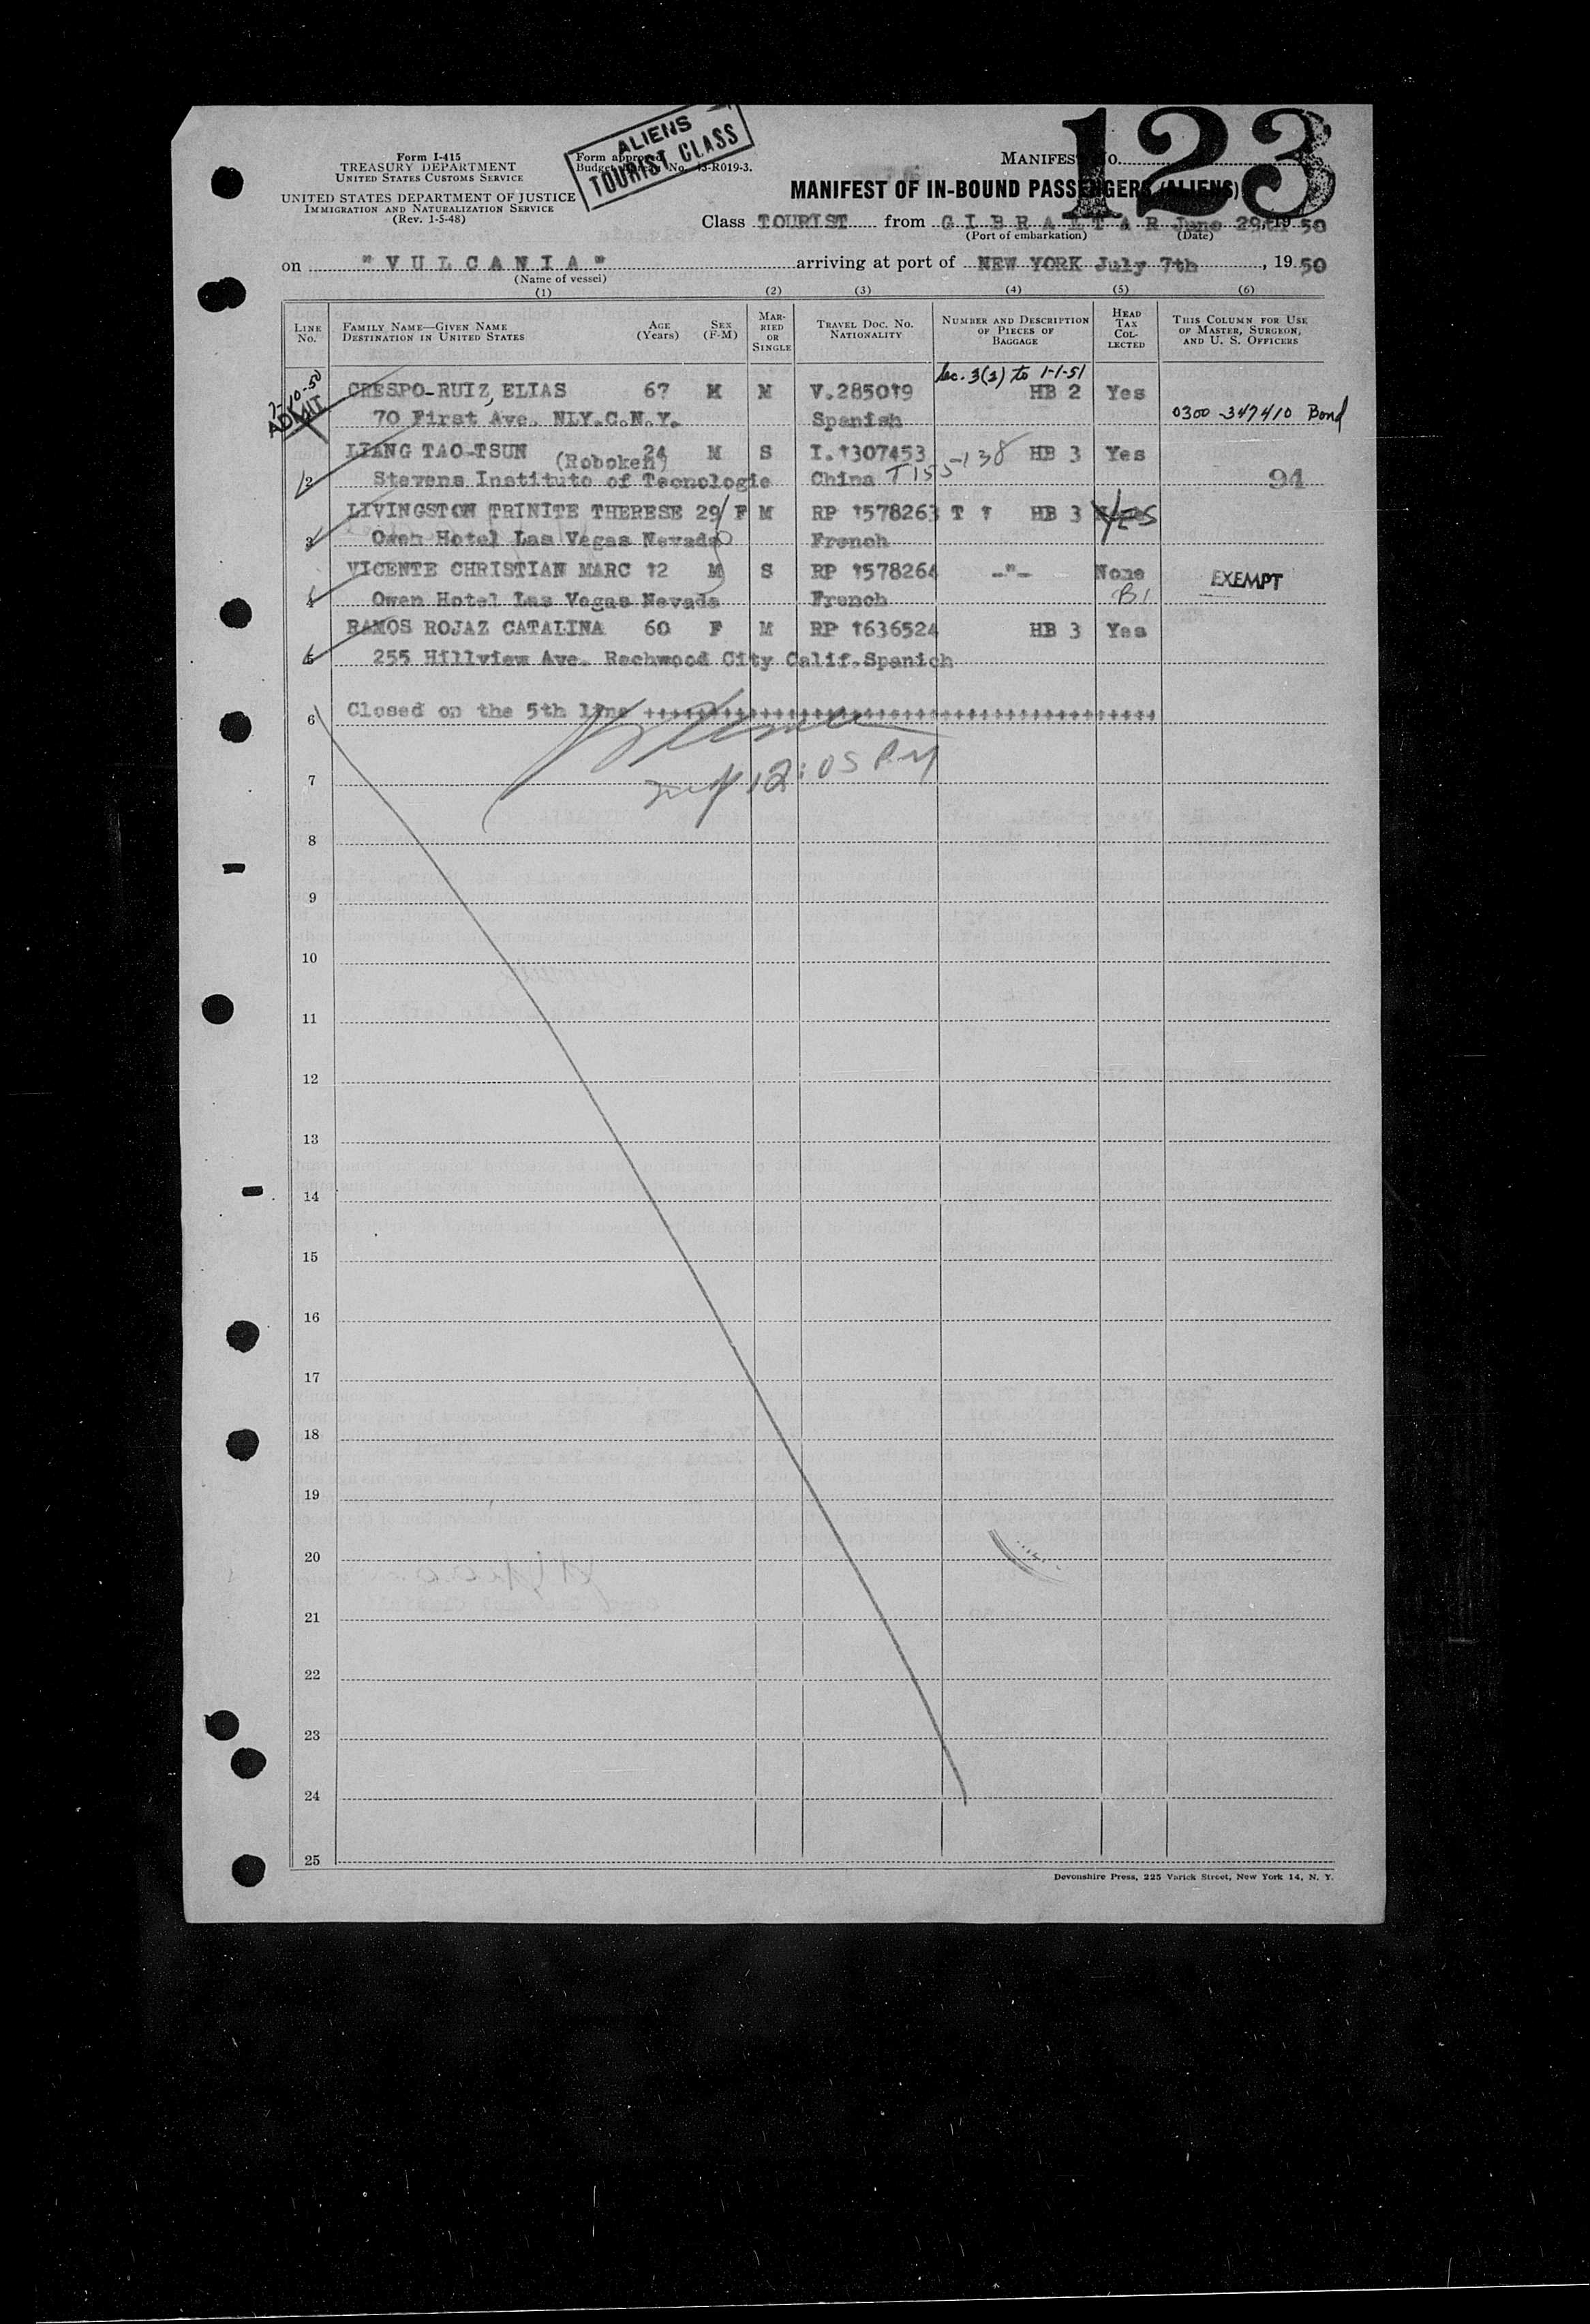 123
ALIENS
TOURIST CLASS
Form I-415
TREASURY DEPARTMENT
UNITED STATES CUSTOMS SERVICE
UNITED STATES DEPARTMENT OF JUSTICE
IMMIGRATION AND NATURALIZATION SERVICE
(Rev. 1-5-48)
Form approved
Budget Bureau No. 43-R019-3.
MANIFEST NO.
MANIFEST OF IN-BOUND PASSENGERS (ALIENS)
Class TOURIST from GIBRALTAR June 29th 1950
(Port of embarkation) (Date)
on "VULCANIA" arriving at port of NEW YORK July 7th, 1950
(Name of vessel)
(1) (2) (3) (4) (5) (6)
LINE No. FAMILY NAME—GIVEN NAME DESTINATION IN UNITED STATES AGE (Years) SEX (F-M) MARRIED OR SINGLE TRAVEL DOC. NO. NATIONALITY NUMBER AND DESCRIPTION OF PIECES OF BAGGAGE HEAD TAX COLLECTED THIS COLUMN FOR USE OF MASTER, SURGEON, AND U. S. OFFICERS
Sec. 3(2) to 1-1-51
7-10-50 ADMIT CRESPO-RUIZ, ELIAS 67 M M V.285019 HB 2 Yes
70 First Ave. NLY.C.N.Y. Spanish 0300-347410 Bond
LIANG TAO-TSUN (Roboken) 24 M S I.1307453 HB 3 Yes
2 Stevens Institute of Tecnologie China T155-138 94
LIVINGSTON TRINITE THERESE 29 F M RP 1578263 T 1 HB 3 YES
3 Owen Hotel Las Vegas Nevada French
VICENTE CHRISTIAN MARC 12 M S RP 1578264 -"- None EXEMPT
4 Owen Hotel Las Vegas Nevada French B1
RAMOS ROJAZ CATALINA 60 F M RP 1636524 HB 3 Yes
5 255 Hillview Ave. Rechwood City Calif. Spanich
6 Closed on the 5th line ++++++++++++++++++++++++++++++++++++++++++++++
12:05 PM
7
8
9
10
11
12
13
14
15
16
17
18
19
20
21
22
23
24
25
Devonshire Press, 225 Varick Street, New York 14, N. Y.